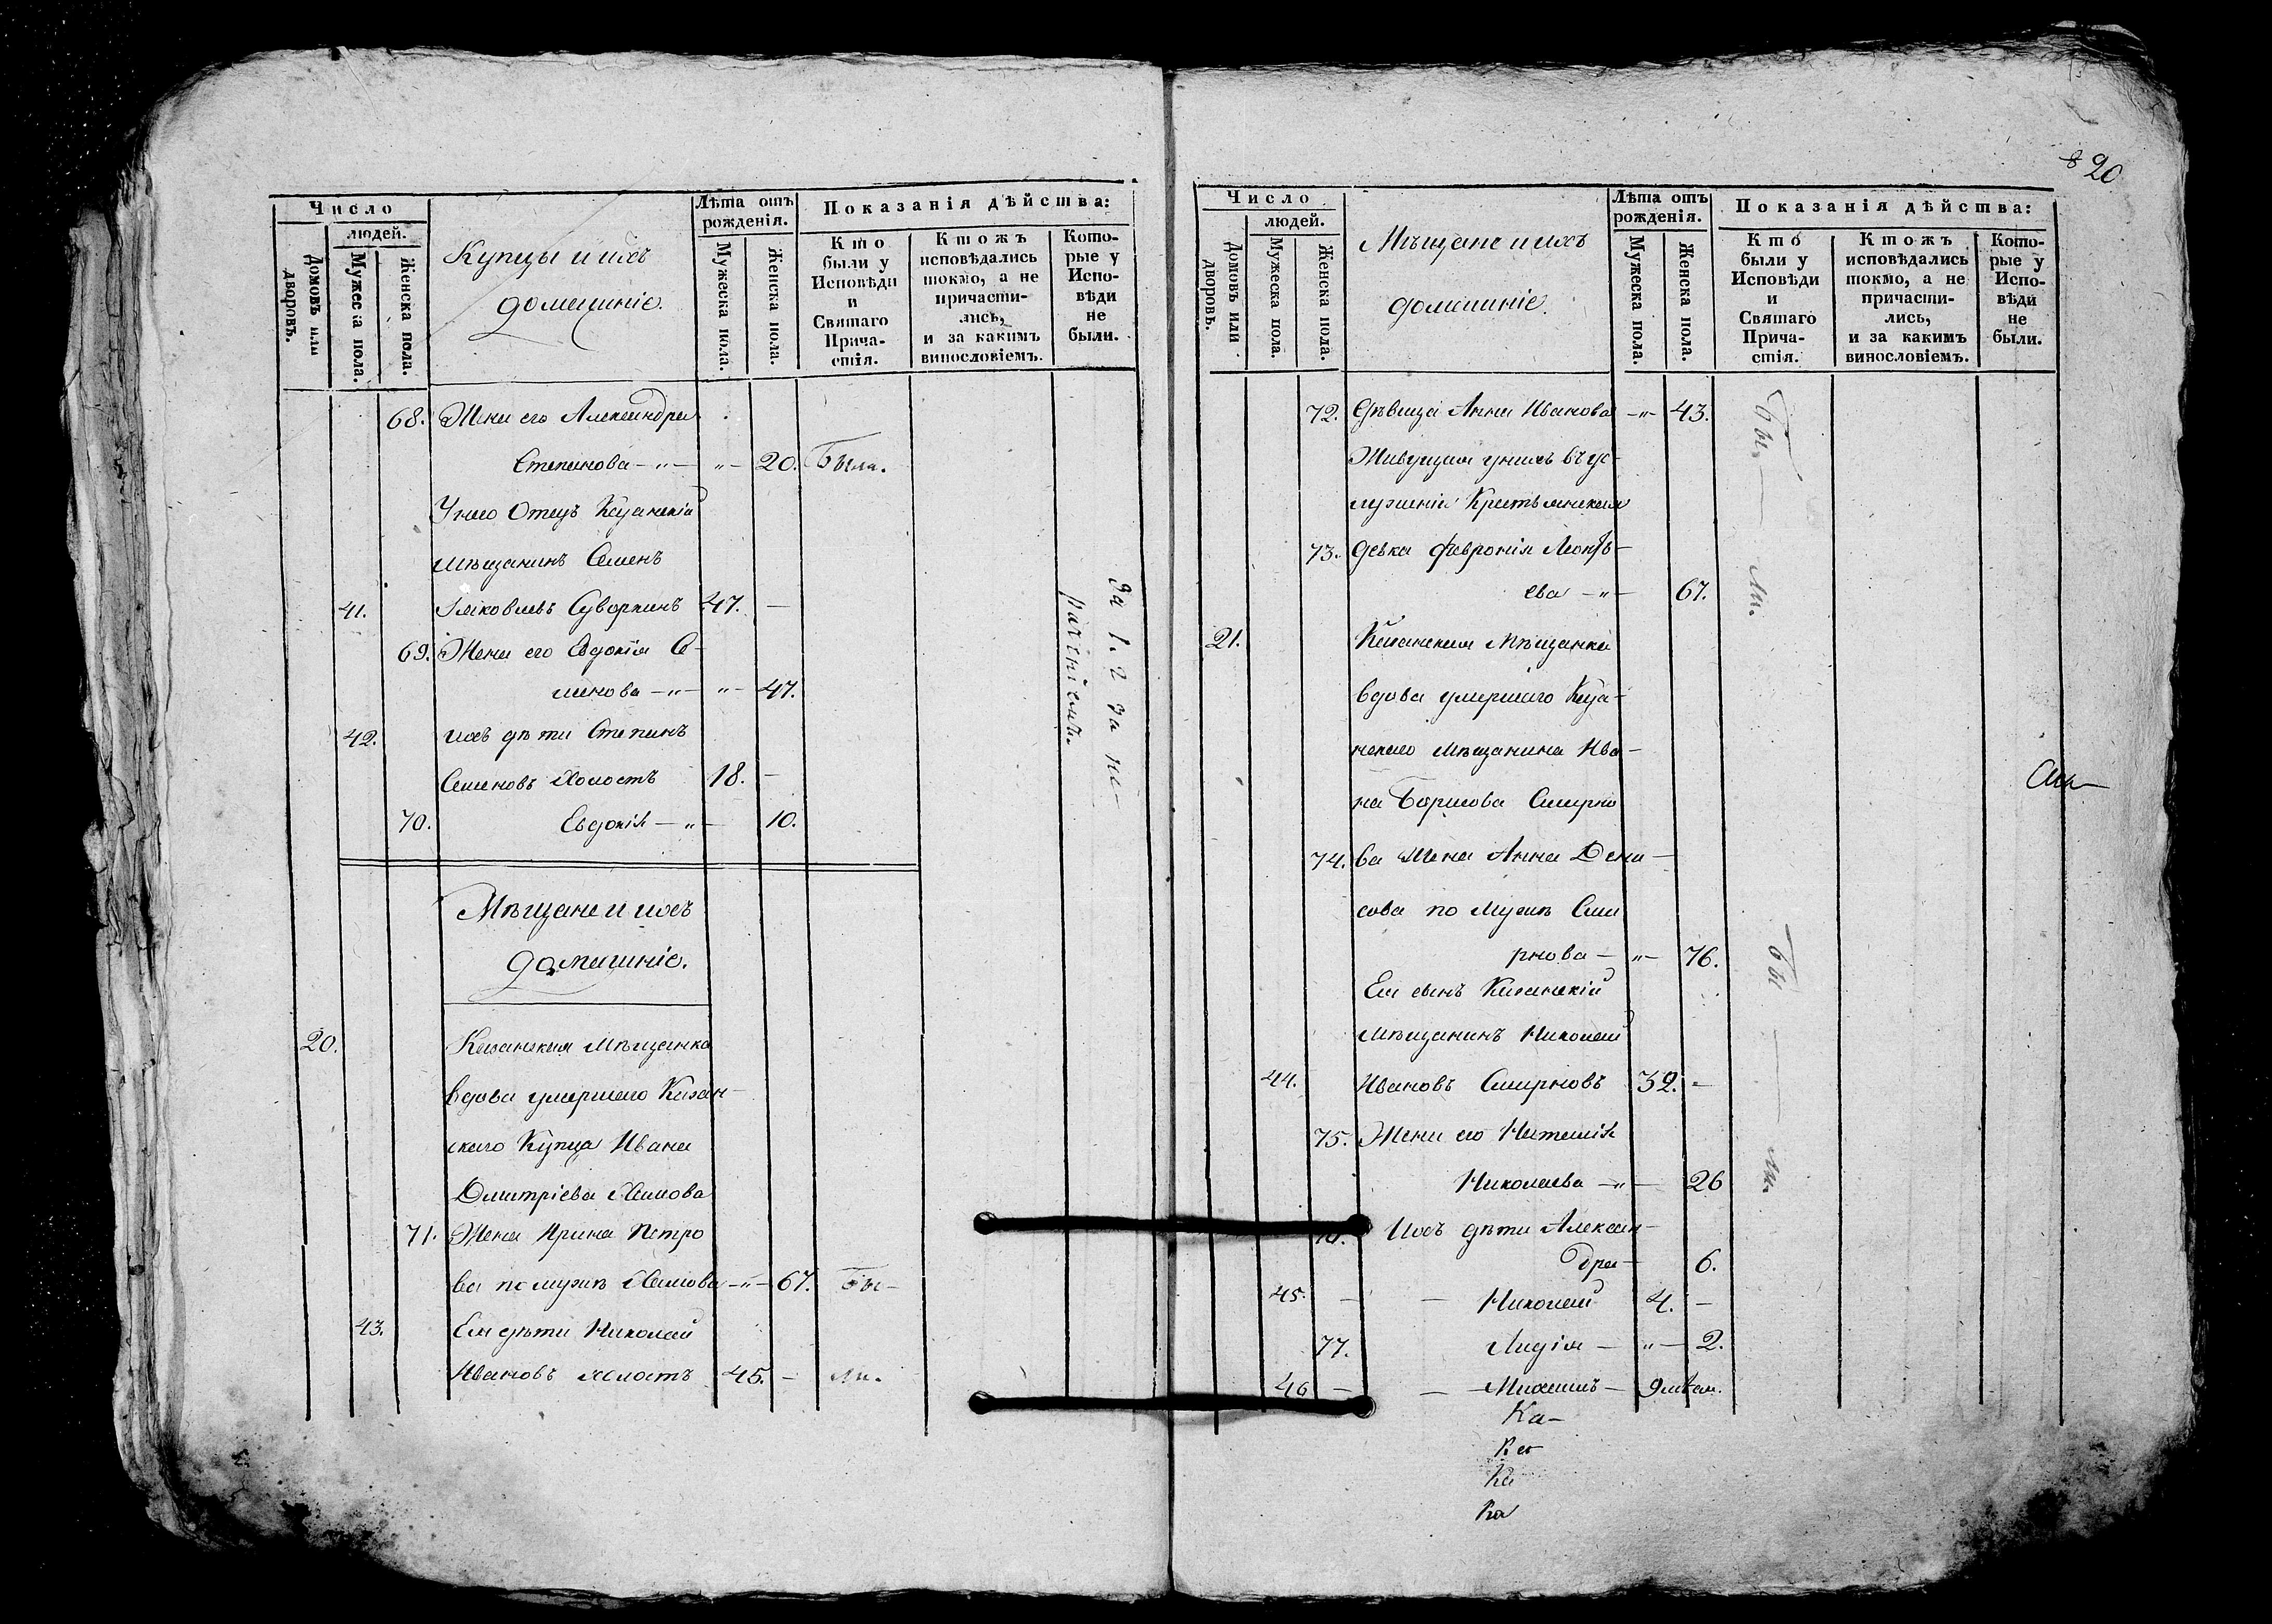 Число
людей.
Домовъ или дворовъ.
Мужеска пола.
Женска пола.
Купцы и ихъ
домашніе.
Лѣта отъ
рожденія.
Мужеска пола.
Женска пола.
Показанія дѣйства:
Кто
были у
Исповѣди
и
Святаго
Прича-
стія.
Ктожъ
исповѣдались
токмо, а не
причасти-
лись,
и за какимъ
винословіемъ.
Кото-
рые у
Испо-
вѣди
не
были.
68. Жена его Александра
Степанова — " — " — 20. Была.
У него Отецъ Казанскій
мѣщанинъ Семенъ
41. Яковлевъ Суворкинъ 47. —
69. Жена его Евдокія Се-
менова — " — " — 47.
42. ихъ дѣти Степанъ
Семеновъ холостъ 18. —
70. Евдокія — " — 10.
за 1. 2 за не-
раченіемъ.
Мѣщане и ихъ
домашніе.
20. Казанская Мѣщанка
вдова умершаго Казан-
скаго Купца Ивана
Дмитріева
71. Жена Ирина Петро
ва по мужѣ — " — 67. Бы-
43. Ея дѣти Николай
Ивановъ холостъ 45. — ли.
20
Число
людей.
Домовъ или дворовъ.
Мужеска пола.
Женска пола.
Мѣщане и ихъ
домашніе.
Лѣта отъ
рожденія.
Мужеска пола.
Женска пола.
Показанія дѣйства:
Кто
были у
Исповѣди
и
Святаго
Прича-
стія.
Ктожъ
исповѣдались
токмо, а не
причасти-
лись,
и за какимъ
винословіемъ.
Кото-
рые у
Испо-
вѣди
не
были.
72. дѣвица Анна Иванова — " — 43.
Живущая у нихъ въ ус-
луженіи Крестьянская
73. девка Февронія Леонть-
ева — " — 67.
Бы — ли.
21. Казанская Мѣщанка
вдова умершаго Каза-
нскаго мѣщанина Ива-
на Борисова Смирно
74. ва Жена Анна Дени-
сова по Мужѣ Сми
рнова — " — 76.
Ея сынъ Казанскій
Мѣщанинъ Николай
44. Ивановъ Смирновъ 32. —
75. Жена его Наталія
Николаева — " — 26
Бы — ли.
Ихъ дѣти Алексан-
дра — 6.
45. — — Николай 4. —
77. Лидія — " — 2.
46 — — Михаилъ —
Ка-
Ка
Ка
Ка